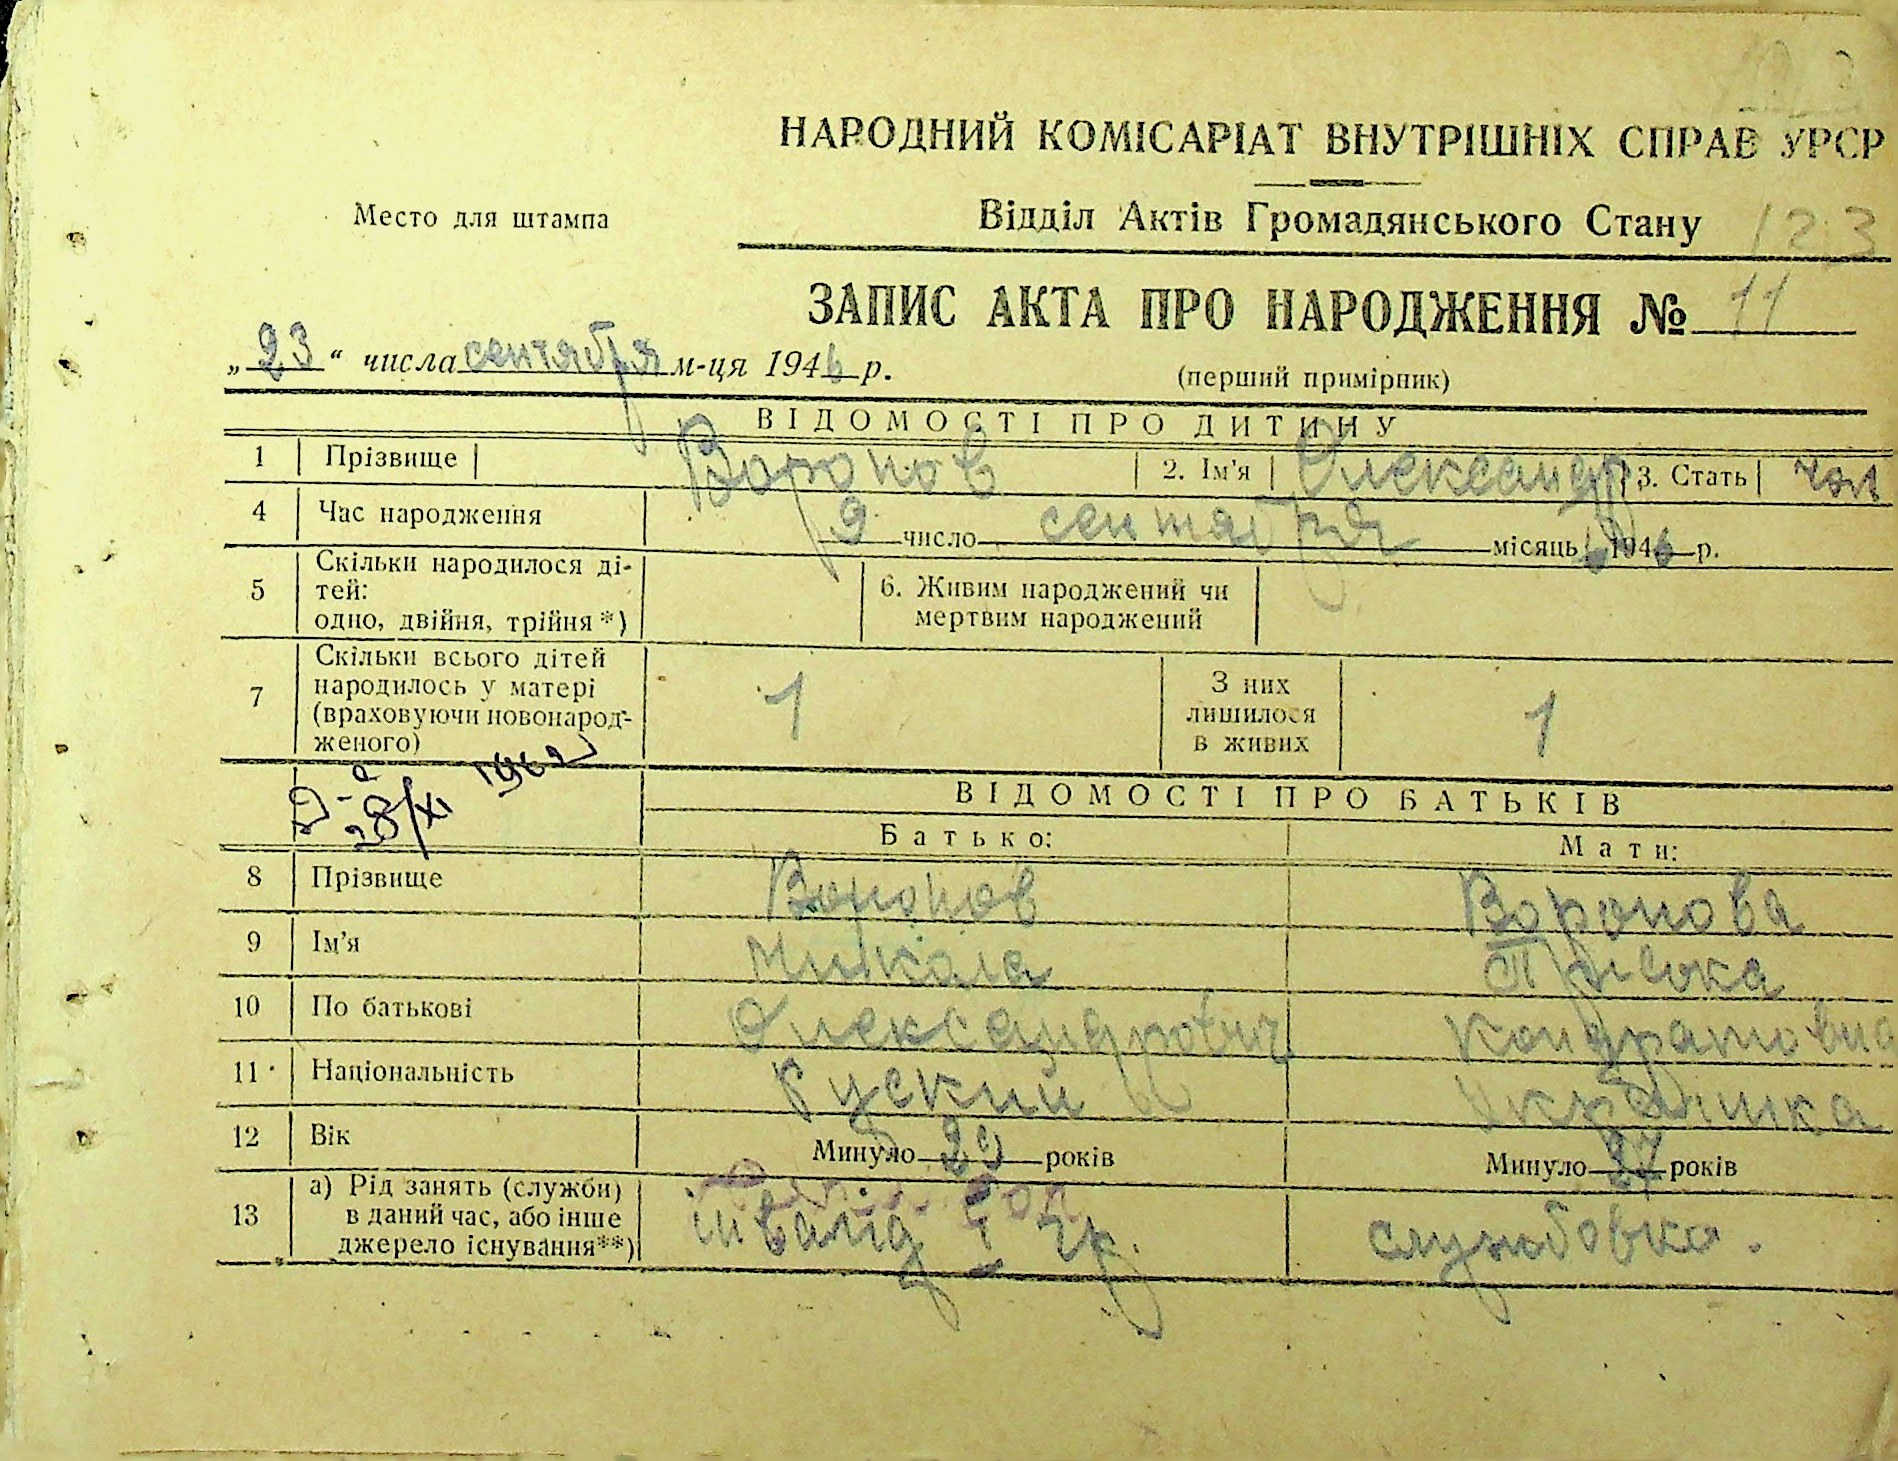 НАРОДНИЙ КОМІСАРІАТ ВНУТРІШНІХ СПРАВ УРСР
Место для штампа
Відділ Актів Громадянського Стану 123
ЗАПИС АКТА ПРО НАРОДЖЕННЯ № 11
„23“ числа сентября м-ця 1946 р.
(перший примірник)
ВІДОМОСТІ ПРО ДИТИНУ
1 Прізвище Воронов 2. Ім'я Олександр 3. Стать чол
4 Час народження 9 число сентября місяць 1946 р.
5 Скільки народилося ді-
тей:
одно, двійня, трійня *)
6. Живим народжений чи
мертвим народжений
7 Скільки всього дітей
народилось у матері
(враховуючи новонарод-
женого)
1
З них
лишилося
в живих
1
28/XI 1962
ВІДОМОСТІ ПРО БАТЬКІВ
Батько: Мати:
8 Прізвище Воронов Воронова
9 Ім'я Микола Пріська
10 По батькові Олександрович Кондратовна
11 Національність Руский Украинка
12 Вік Минуло 29 років Минуло 27 років
13 а) Рід занять (служби)
в даний час, або інше
джерело існування**)
інвалід
службовка.